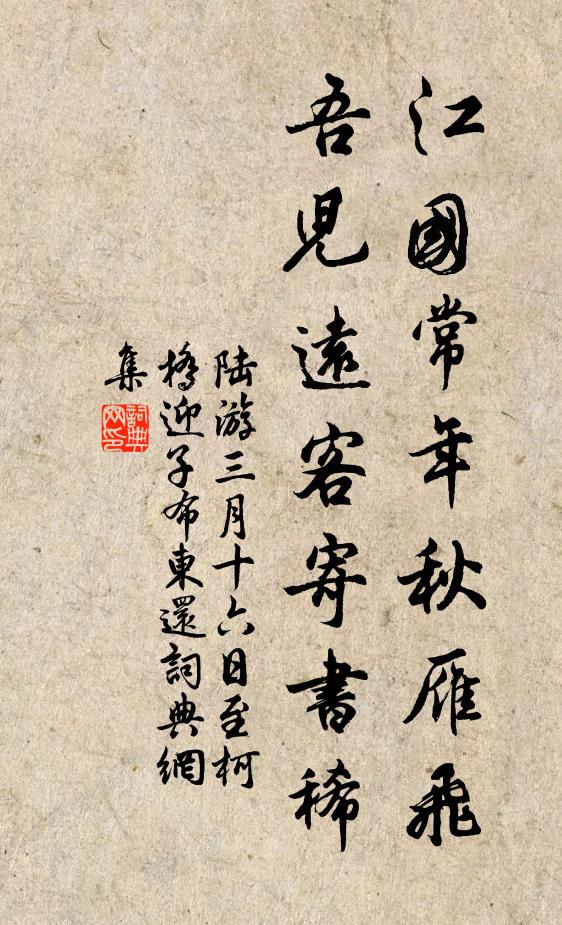 江國常年秋雁飛
吾兒遠客寄書稀
陸游三月十六日至柯
橋迎子布東還詞典網
集
詞典網印